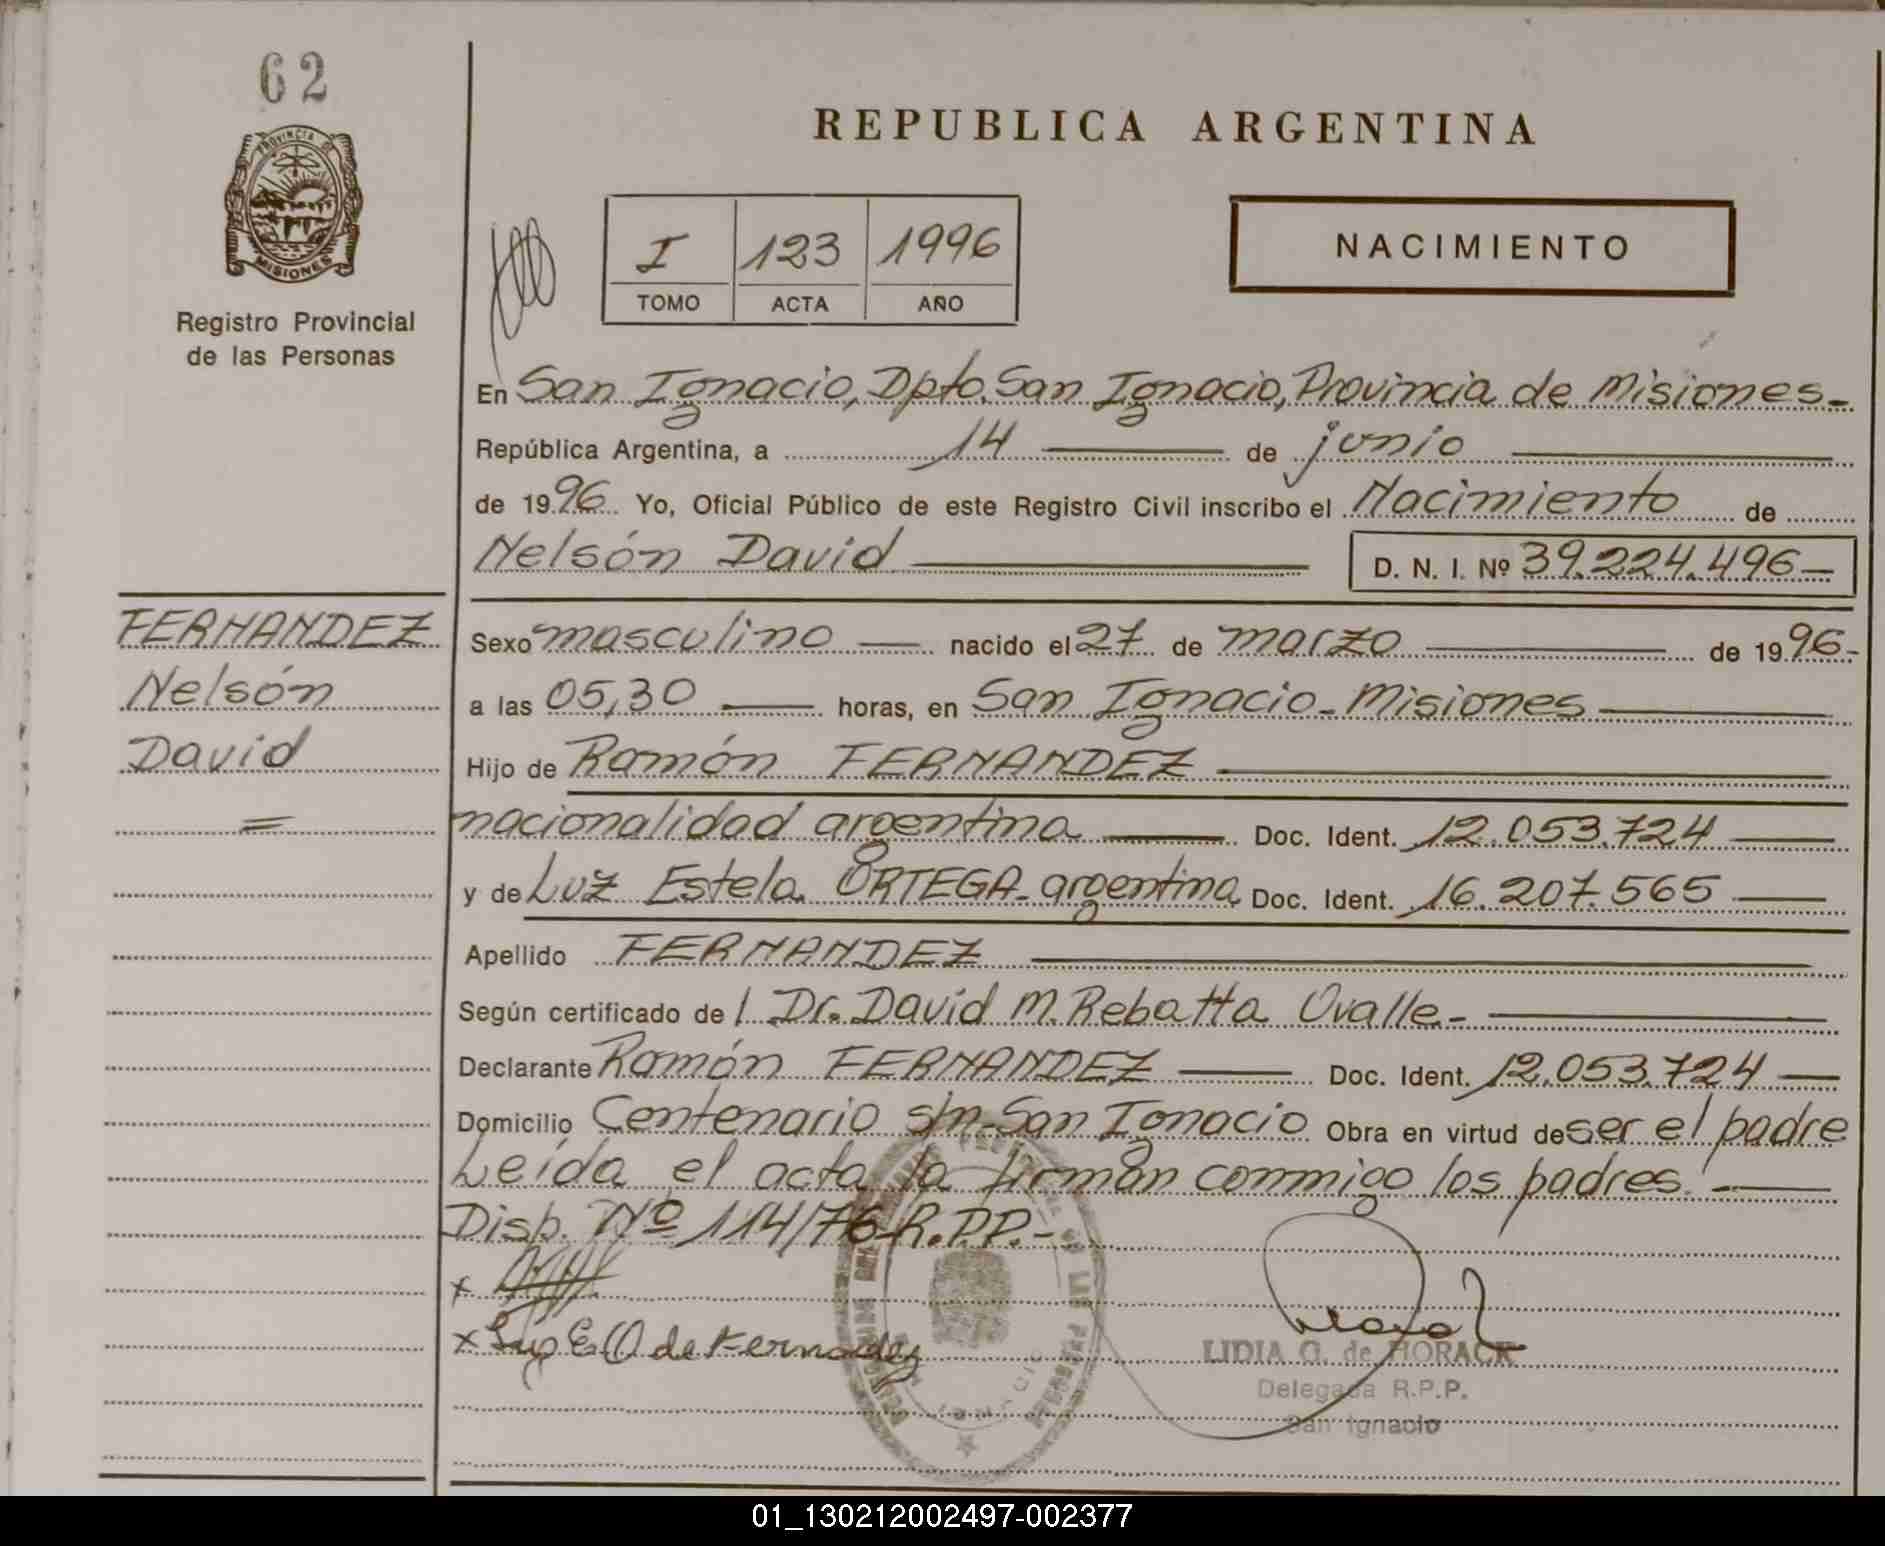 62
PROVINCIA DE
MISIONES
Registro Provincial
de las Personas
REPUBLICA ARGENTINA
I 123 1996
TOMO ACTA AÑO
NACIMIENTO
En San Ignacio, Dpto. San Ignacio, Provincia de Misiones.-
República Argentina, a 14 de junio
de 1996 Yo, Oficial Público de este Registro Civil inscribo el Nacimiento de
Nelsón David D. N. I. Nº 39.224.496
FERNANDEZ
Nelsón
David
Sexo masculino nacido el 27 de marzo de 1996.-
a las 05,30 horas, en San Ignacio - Misiones
Hijo de Ramón FERNANDEZ
nacionalidad argentina Doc. Ident. 12.053.724
y de Luz Estela ORTEGA - argentina Doc. Ident. 16.207.565
Apellido FERNANDEZ
Según certificado de l Dr. David M. Rebatta Ovalle.-
Declarante Ramón FERNANDEZ Doc. Ident. 12.053.724
Domicilio Centenario s/n - San Ignacio Obra en virtud de ser el padre
Leída el acta la firman conmigo los padres.-
Disp. Nº 114/76 R.P.P.-
x
x Luz E. O de Fernandez
LIDIA G. de HORACK
Delegada R.P.P.
San Ignacio
01_130212002497-002377